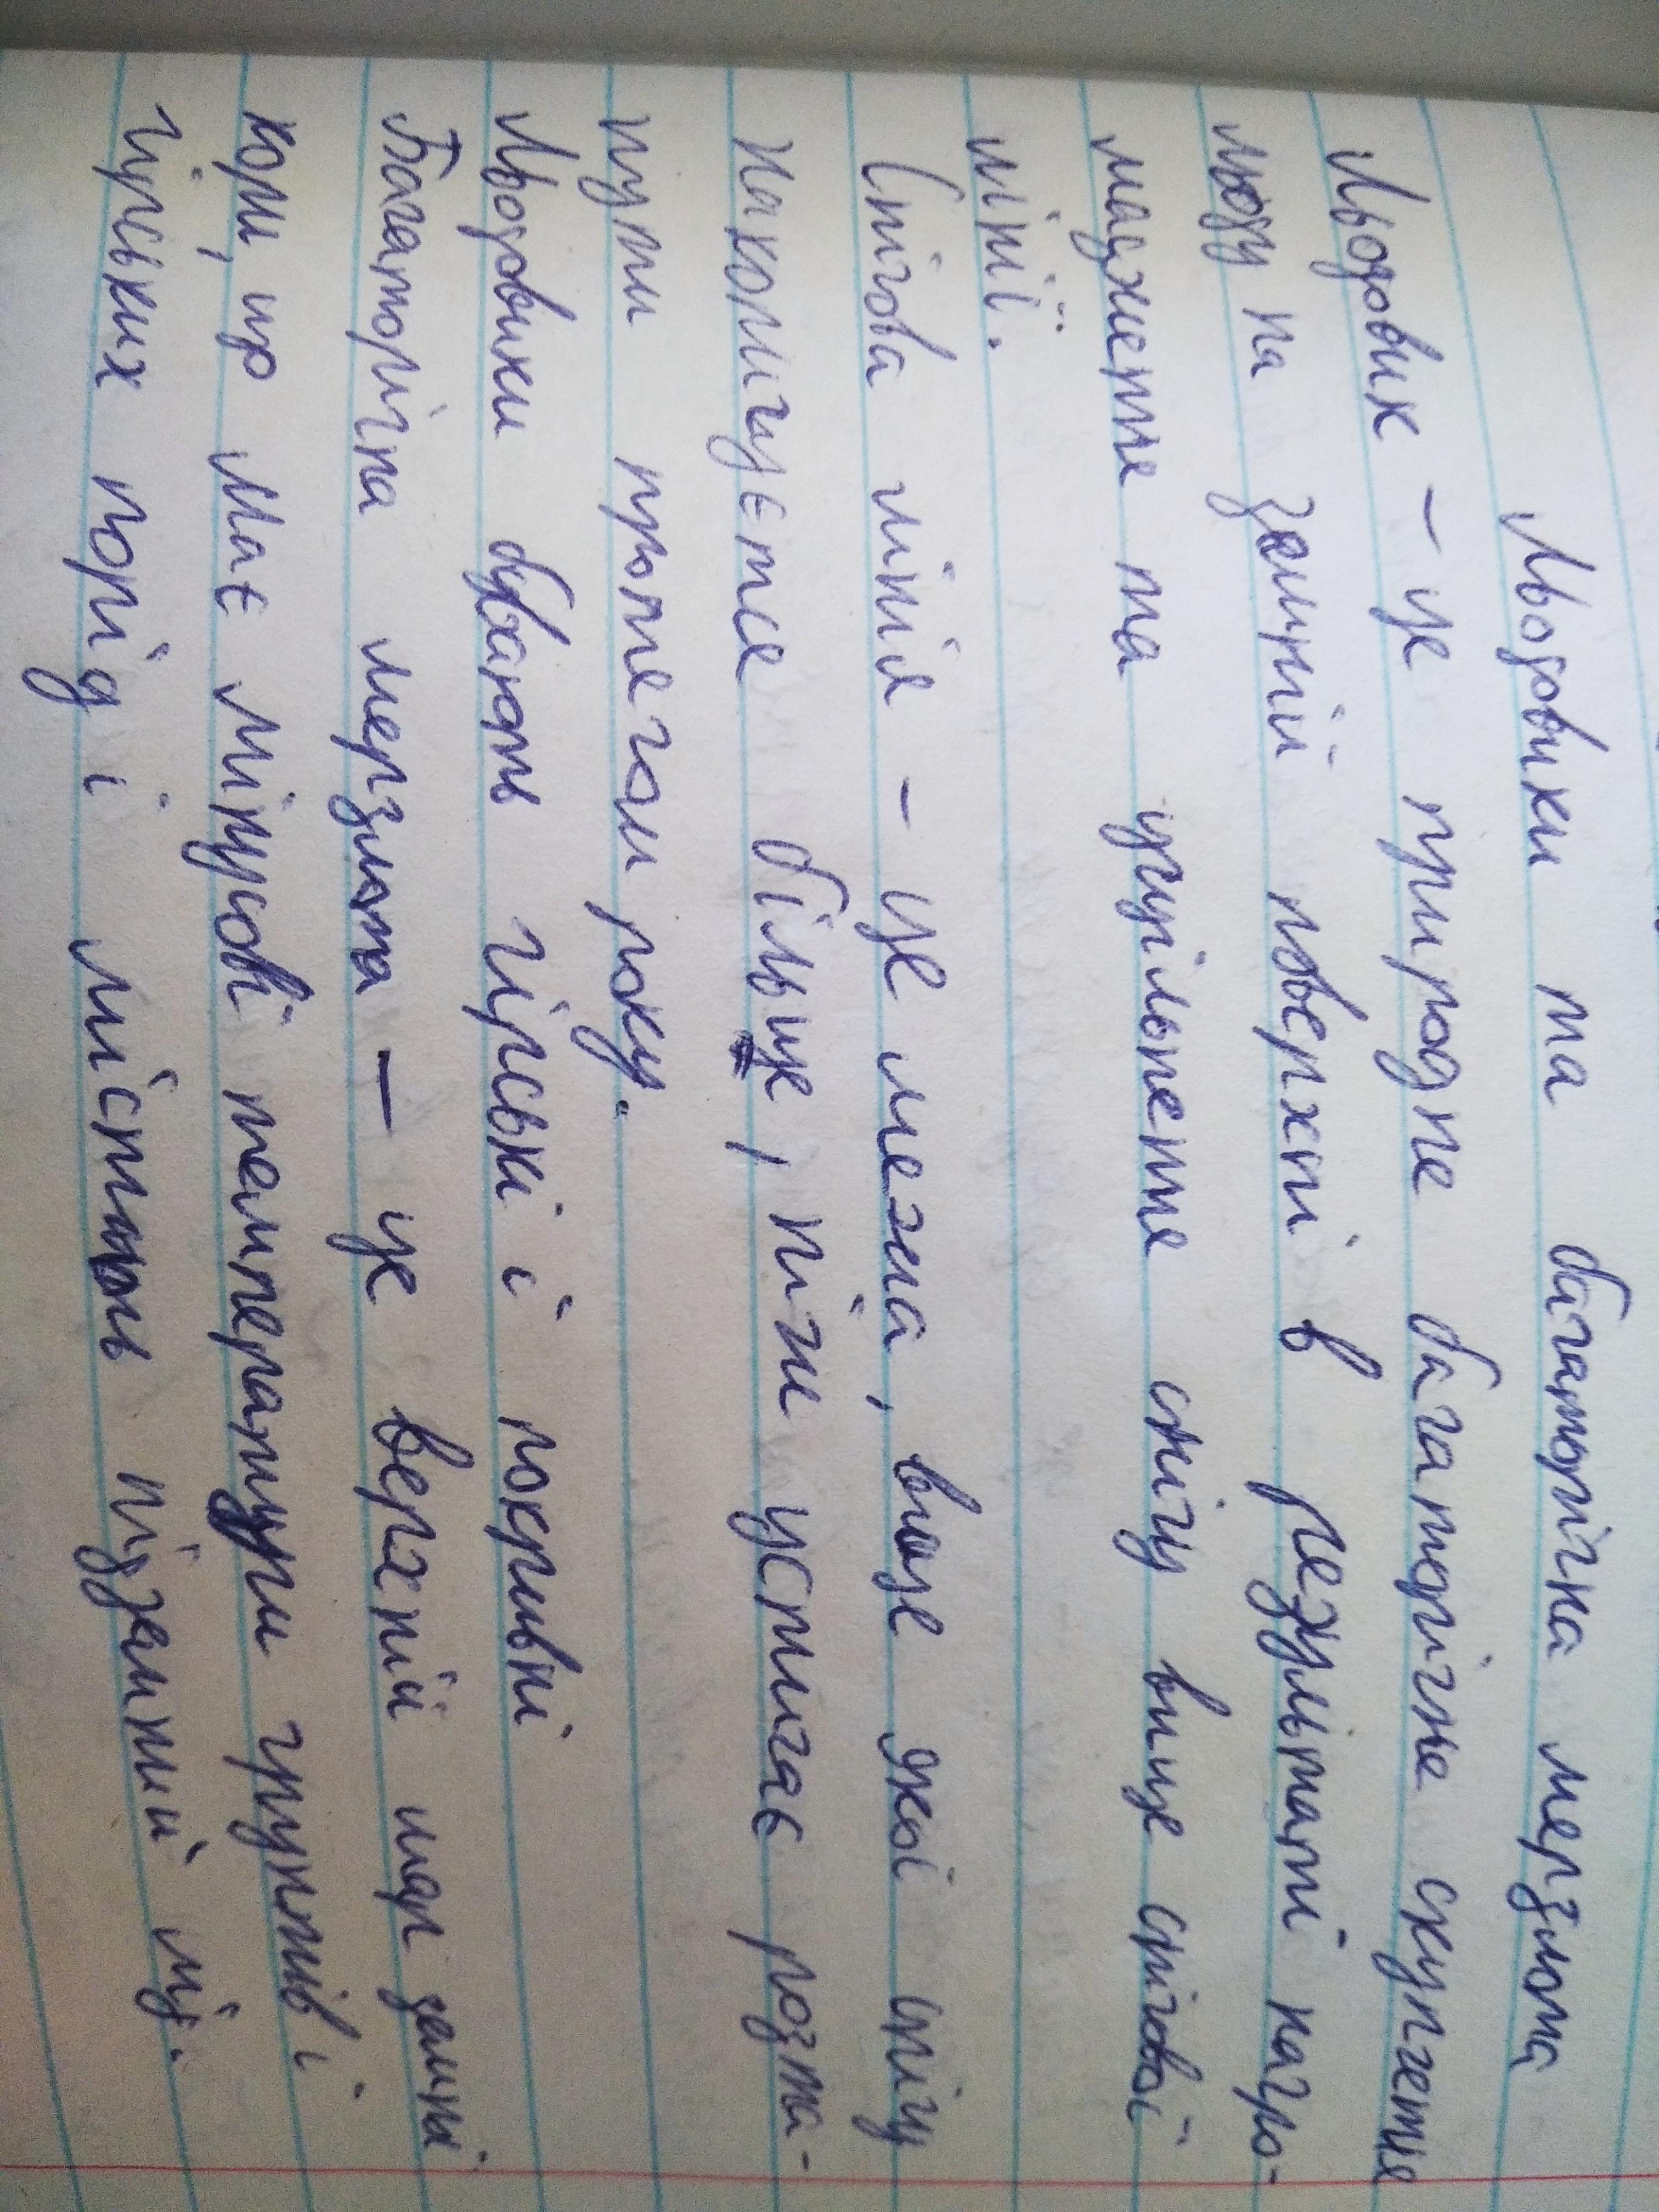 Льодовики та багаторічна мерзлота
Льодовик – це природне багаторічне скупчення
льоду на земній поверхні в результаті нагро-
мадження та ущільнення снігу вище снігової
лінії.
Снігова лінія – це межа, вище якої снігу
накопичується більше, ніж устигає розта-
нути протягом року.
Льодовики бувають гірські і покривні
Багаторічна мерзлота – це верхній шар земної
кори, що має мінусові температури грунтів і
гірських порід і містить підземний лід.